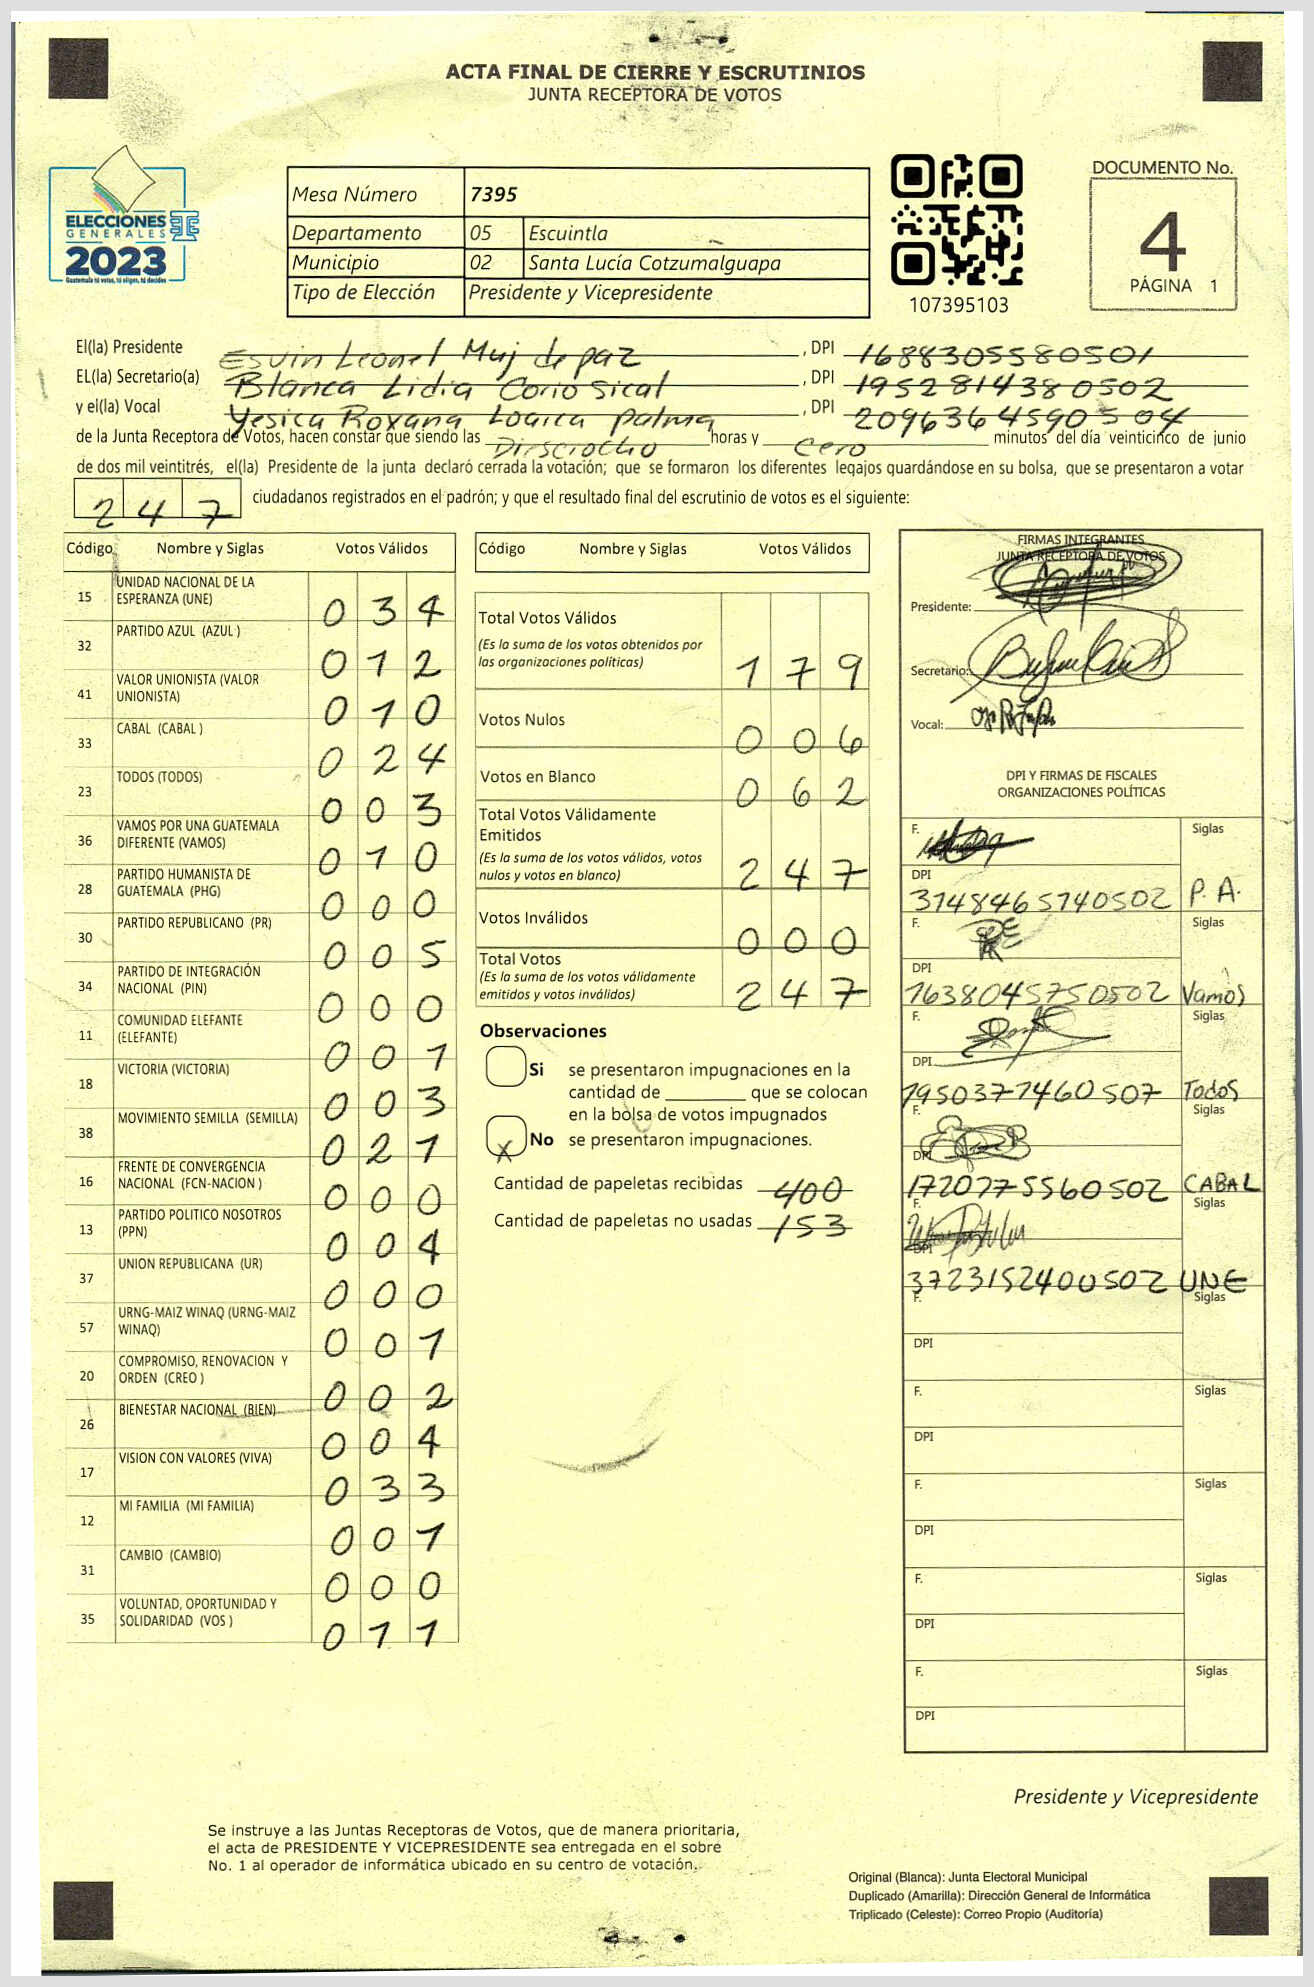 ACTA FINAL DE CIERRE Y ESCRUTINIOS
JUNTA RECEPTORA DE VOTOS
ELECCIONES
GENERALES
2023
Guatemala tú votas, tú eliges, tú decides
Mesa Número 7395
Departamento 05 Escuintla
Municipio 02 Santa Lucía Cotzumalguapa
Tipo de Elección Presidente y Vicepresidente
107395103
DOCUMENTO No.
4
PÁGINA 1
El(la) Presidente Esvin Leonel Muj de paz, DPI 1688305580501
EL(la) Secretario(a) Blanca Lidia Corio Sical, DPI 1952814380502
y el(la) Vocal Yesica Roxana Loaica Palma, DPI 2096364590504
de la Junta Receptora de Votos, hacen constar que siendo las Dirsciocho horas y cero minutos del día veinticinco de junio
de dos mil veintitrés, el(la) Presidente de la junta declaró cerrada la votación; que se formaron los diferentes legajos guardándose en su bolsa, que se presentaron a votar
247 ciudadanos registrados en el padrón; y que el resultado final del escrutinio de votos es el siguiente:
Código Nombre y Siglas Votos Válidos
15 UNIDAD NACIONAL DE LA ESPERANZA (UNE) 034
32 PARTIDO AZUL (AZUL ) 012
41 VALOR UNIONISTA (VALOR UNIONISTA) 010
33 CABAL (CABAL ) 024
23 TODOS (TODOS) 003
36 VAMOS POR UNA GUATEMALA DIFERENTE (VAMOS) 010
28 PARTIDO HUMANISTA DE GUATEMALA (PHG) 000
30 PARTIDO REPUBLICANO (PR) 005
34 PARTIDO DE INTEGRACIÓN NACIONAL (PIN) 000
11 COMUNIDAD ELEFANTE (ELEFANTE) 001
18 VICTORIA (VICTORIA) 003
38 MOVIMIENTO SEMILLA (SEMILLA) 021
16 FRENTE DE CONVERGENCIA NACIONAL (FCN-NACION ) 000
13 PARTIDO POLITICO NOSOTROS (PPN) 004
37 UNION REPUBLICANA (UR) 000
57 URNG-MAIZ WINAQ (URNG-MAIZ WINAQ) 001
20 COMPROMISO, RENOVACION Y ORDEN (CREO ) 002
26 BIENESTAR NACIONAL (BIEN) 004
17 VISION CON VALORES (VIVA) 033
12 MI FAMILIA (MI FAMILIA) 001
31 CAMBIO (CAMBIO) 000
35 VOLUNTAD, OPORTUNIDAD Y SOLIDARIDAD (VOS ) 011
Código Nombre y Siglas Votos Válidos
Total Votos Válidos
(Es la suma de los votos obtenidos por
las organizaciones políticas) 179
Votos Nulos 006
Votos en Blanco 062
Total Votos Válidamente
Emitidos
(Es la suma de los votos válidos, votos
nulos y votos en blanco) 247
Votos Inválidos 000
Total Votos
(Es la suma de los votos válidamente
emitidos y votos inválidos) 247
Observaciones
Si se presentaron impugnaciones en la
cantidad de ________ que se colocan
en la bolsa de votos impugnados
X No se presentaron impugnaciones.
Cantidad de papeletas recibidas 400
Cantidad de papeletas no usadas 153
FIRMAS INTEGRANTES
JUNTA RECEPTORA DE VOTOS
Presidente:
Secretario:
Vocal:
DPI Y FIRMAS DE FISCALES
ORGANIZACIONES POLÍTICAS
F. Siglas
DPI
3748465740502 P. A.
F. Siglas
DPI
1638045750502 Vamos
F. Siglas
DPI
1950371460507 Todos
F. Siglas
DPI
1720775560502 CABAL
F. Siglas
DPI
3723152400502 UNE
F. Siglas
DPI
F. Siglas
DPI
F. Siglas
DPI
F. Siglas
DPI
F. Siglas
DPI
Presidente y Vicepresidente
Se instruye a las Juntas Receptoras de Votos, que de manera prioritaria,
el acta de PRESIDENTE Y VICEPRESIDENTE sea entregada en el sobre
No. 1 al operador de informática ubicado en su centro de votación.
Original (Blanca): Junta Electoral Municipal
Duplicado (Amarilla): Dirección General de Informática
Triplicado (Celeste): Correo Propio (Auditoría)